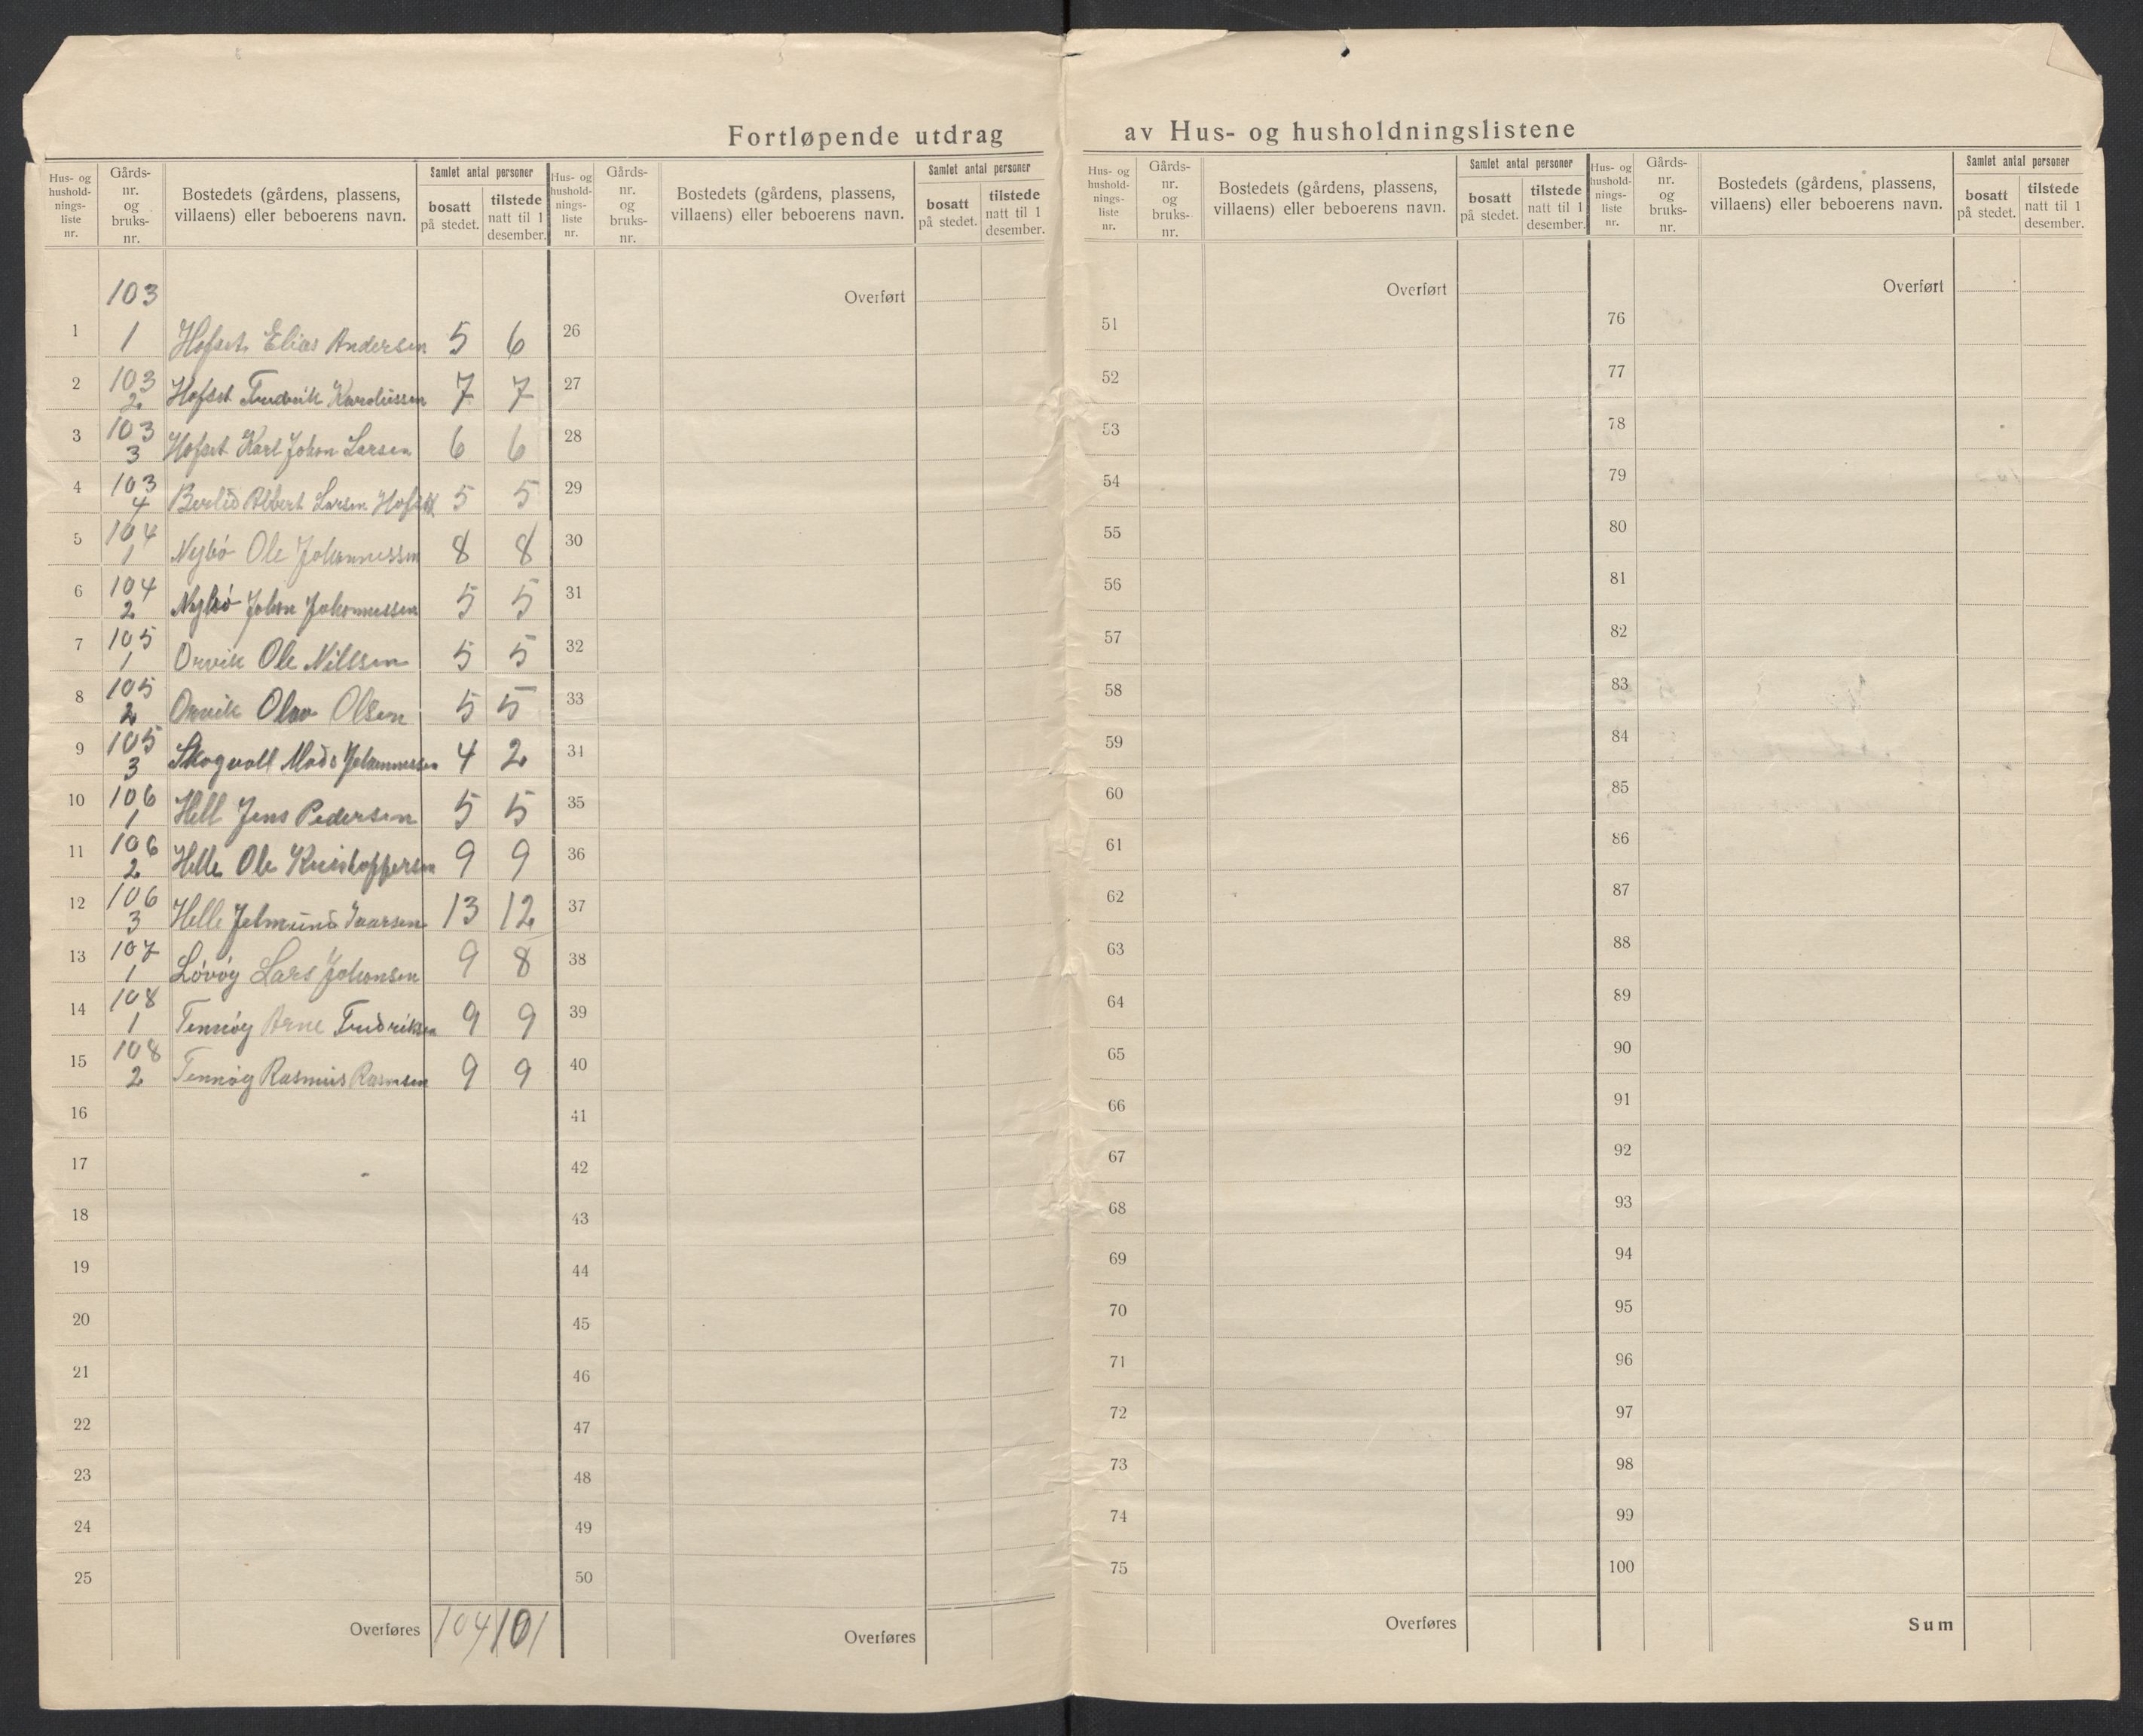 Fortløpende utdrag av Hus- og husholdningslistene
Hus- og hushold- nings- liste nr.
Gårds- nr. og bruks- nr.
Bostedets (gårdens, plassens, villaens) eller beboerens navn.
Samlet antal personer
bosatt på stedet.
tilstede natt til 1 desember.
103
1 1 Hofset Elias Andersen 5 6
2 103 2 Hofset Fredrik Karolussen 7 7
3 103 3 Hofset Karl Johan Larsen 6 6
4 103 4 Albert Larsen Hofset 5 5
5 104 1 Nybø Ole Johannessen 8 8
6 104 2 Nybø Johan Johannessen 5 5
7 105 1 Orvik Ole Nilssen 5 5
8 105 2 Orvik Olav Olsen 5 5
9 105 3 Skogvoll Mads Johannessen 4 2
10 106 1 Hell Jens Pedersen 5 5
11 106 2 Helle Ole Kristoffersen 9 9
12 106 3 Helle Jetmund Ivarsen 13 12
13 107 1 Løvøy Lars Johansen 9 8
14 108 1 Tennøy Arne Fredriksen 9 9
15 108 2 Tennøy Rasmus Rasmsen 9 9
16
17
18
19
20
21
22
23
24
25
Overføres 104 101
Hus- og hushold- nings- liste nr.
Gårds- nr. og bruks- nr.
Bostedets (gårdens, plassens, villaens) eller beboerens navn.
Samlet antal personer
bosatt på stedet.
tilstede natt til 1 desember.
Overført
26
27
28
29
30
31
32
33
34
35
36
37
38
39
40
41
42
43
44
45
46
47
48
49
50
Overføres
Hus- og hushold- nings- liste nr.
Gårds- nr. og bruks- nr.
Bostedets (gårdens, plassens, villaens) eller beboerens navn.
Samlet antal personer
bosatt på stedet.
tilstede natt til 1 desember.
Overført
51
52
53
54
55
56
57
58
59
60
61
62
63
64
65
66
67
68
69
70
71
72
73
74
75
Overføres
Hus- og hushold- nings- liste nr.
Gårds- nr. og bruks- nr.
Bostedets (gårdens, plassens, villaens) eller beboerens navn.
Samlet antal personer
bosatt på stedet.
tilstede natt til 1 desember.
Overført
76
77
78
79
80
81
82
83
84
85
86
87
88
89
90
91
92
93
94
95
96
97
98
99
100
Sum